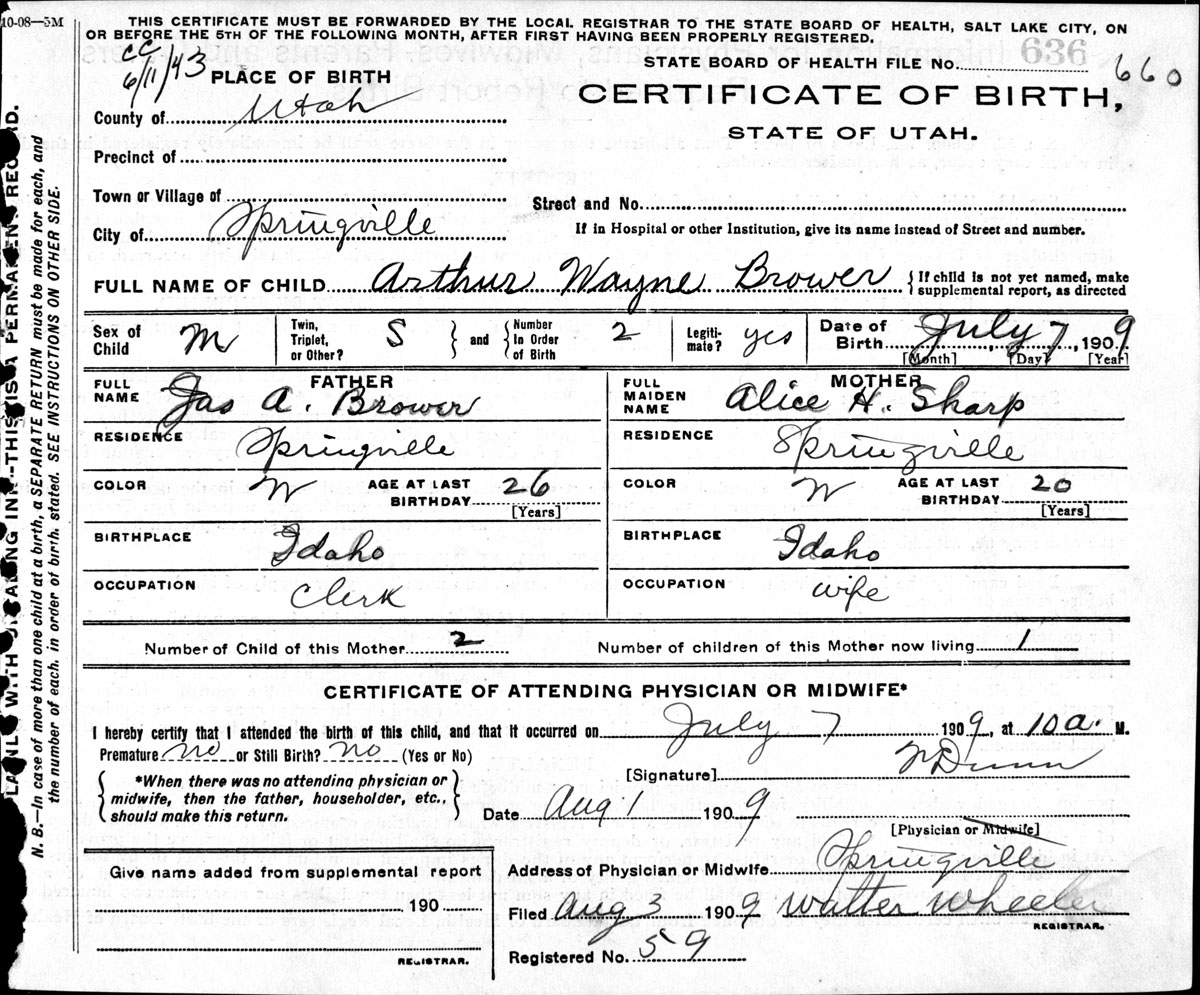 10-08—3M
THIS CERTIFICATE MUST BE FORWARDED BY THE LOCAL REGISTRAR TO THE STATE BOARD OF HEALTH, SALT LAKE CITY, ON
OR BEFORE THE 5TH OF THE FOLLOWING MONTH, AFTER FIRST HAVING BEEN PROPERLY REGISTERED.
CC
6/11/43
STATE BOARD OF HEALTH FILE No. 636 660
PLACE OF BIRTH
CERTIFICATE OF BIRTH,
STATE OF UTAH.
County of Utah
Precinct of
Town or Village of
Street and No.
City of Springville
If in Hospital or other Institution, give its name instead of Street and number.
FULL NAME OF CHILD Arthur Wayne Brower { If child is not yet named, make supplemental report, as directed
Sex of Child M Twin, Triplet, or Other? S } and { Number In Order of Birth 2 Legiti-mate? yes Date of Birth July 7, 1909
[Month] [Day] [Year]
FATHER
FULL NAME Jas A. Brower
RESIDENCE Springville
COLOR W AGE AT LAST BIRTHDAY 26 [Years]
BIRTHPLACE Idaho
OCCUPATION Clerk
MOTHER
FULL MAIDEN NAME Alice H. Sharp
RESIDENCE Springville
COLOR W AGE AT LAST BIRTHDAY 20 [Years]
BIRTHPLACE Idaho
OCCUPATION wife
Number of Child of this Mother 2 Number of children of this Mother now living 1
CERTIFICATE OF ATTENDING PHYSICIAN OR MIDWIFE*
I hereby certify that I attended the birth of this child, and that it occurred on July 7 1909, at 10 a. M.
Premature no or Still Birth? no (Yes or No)
{ *When there was no attending physician or midwife, then the father, householder, etc., should make this return. }
[Signature] Dunn
Date Aug 1 1909
[Physician or Midwife]
Give name added from supplemental report
190
REGISTRAR.
Address of Physician or Midwife Springville
Filed Aug 3 1909 Walter Wheeler
REGISTRAR.
Registered No. 59
WITH INK—THIS IS A PERMANENT RECORD.
N. B.—In case of more than one child at a birth, a SEPARATE RETURN must be made for each, and
the number of each, in order of birth, stated. SEE INSTRUCTIONS ON OTHER SIDE.